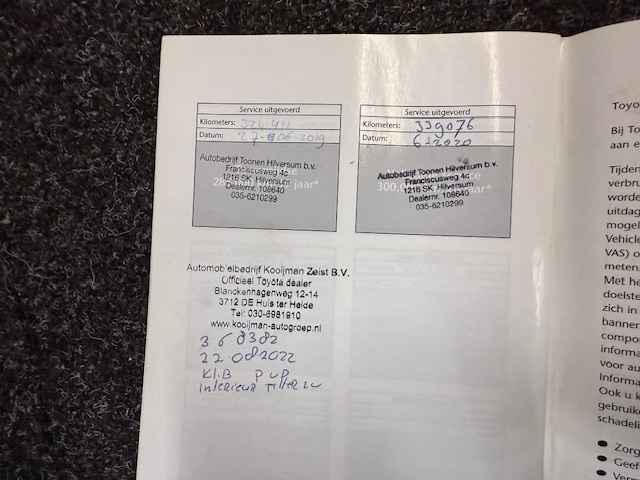 Service uitgevoerd
Kilometers:
Datum: 2019
Autobedrijf Toonen Hilversum b.v.
Franciscusweg 4c
1216 SK Hilversum
Dealernr. 108640
035-6210299
jaar*
Service uitgevoerd
Kilometers: 339076
Datum: 2020
Autobedrijf Toonen Hilversum b.v.
Franciscusweg 4c
1216 SK, Hilversum
Dealernr. 108640
035-6210299
300.000 jaar*
Automobielbedrijf Kooijman Zeist B.V.
Officieel Toyota dealer
Blanckenhagenweg 12-14
3712 DE Huis ter Heide
Tel: 030-6981910
www.kooijman-autogroep.nl
368382
22 08 2022
KL.B
INTERIEUR
Toyo
Bij To
aan e
Tijden
verbr
worde
uitdag
mogel
Vehicle
VAS) o
meten
Met he
doelst
zich in
banner
compo
informa
voor au
Informa
Ook u k
gebruike
schadeli
● Zorg
● Geef